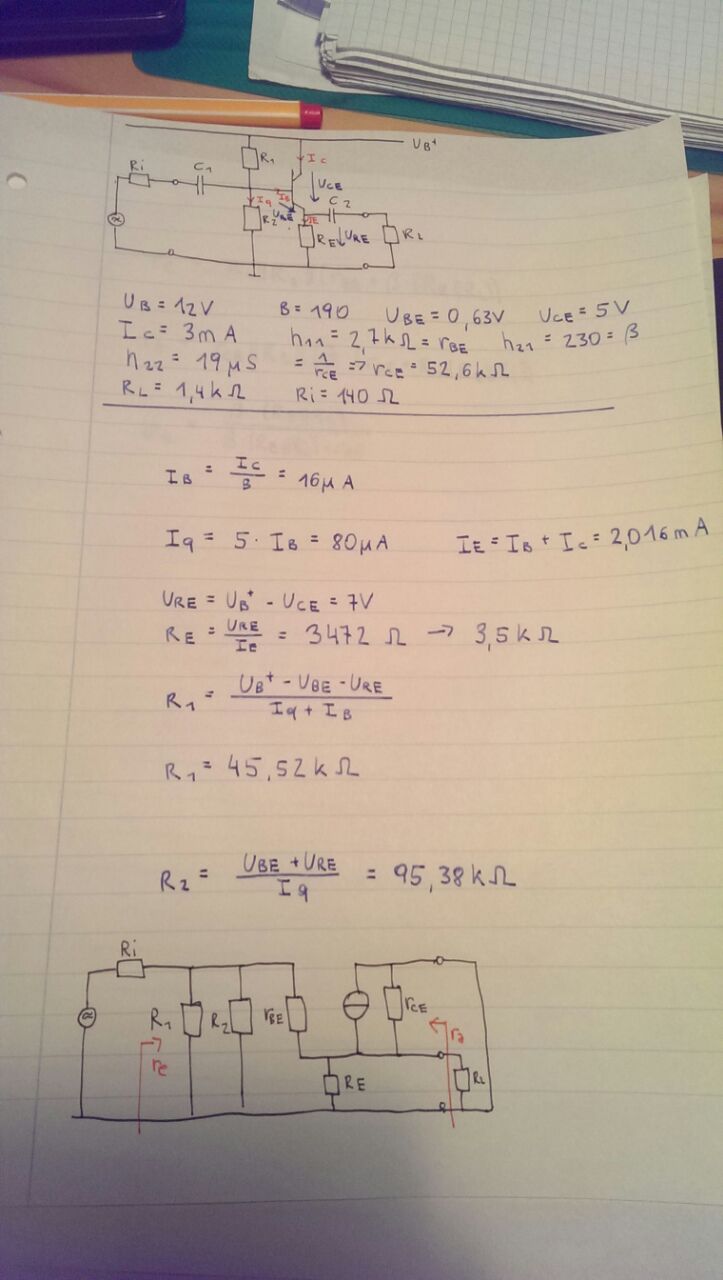 UB+
R1
Ic
Ri
C1
UCE
Iq
IB
C2
R2
UBE
IE
RE
URE
R2
UB = 12V B = 190 UBE = 0,63V UCE = 5V
Ic = 3mA h11 = 2,7kΩ = rBE h21 = 230 = β
h22 = 19μS = 1/rCE => rCE = 52,6kΩ
RL = 1,4kΩ Ri = 140 Ω
IB = Ic/B = 16μA
Iq = 5 · IB = 80μA IE = IB + Ic = 2,016mA
URE = UB+ - UCE = 7V
RE = URE/IE = 3472 Ω → 3,5kΩ
R1 = UB+ - UBE - URE / Iq + IB
R1 = 45,52kΩ
R2 = UBE + URE / Iq = 95,38kΩ
Ri
R1
R2
rBE
rCE
re
ra
RE
RL